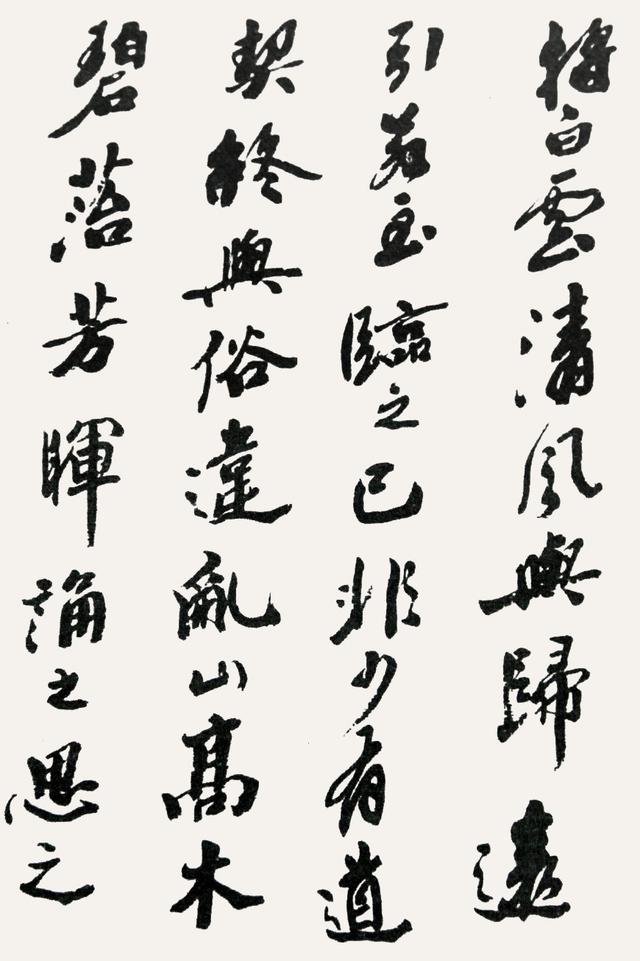 將白雲清風與歸遠
引若至臨之已非少有道
契終與俗違亂山髙木
碧菭芳暉誦之思之